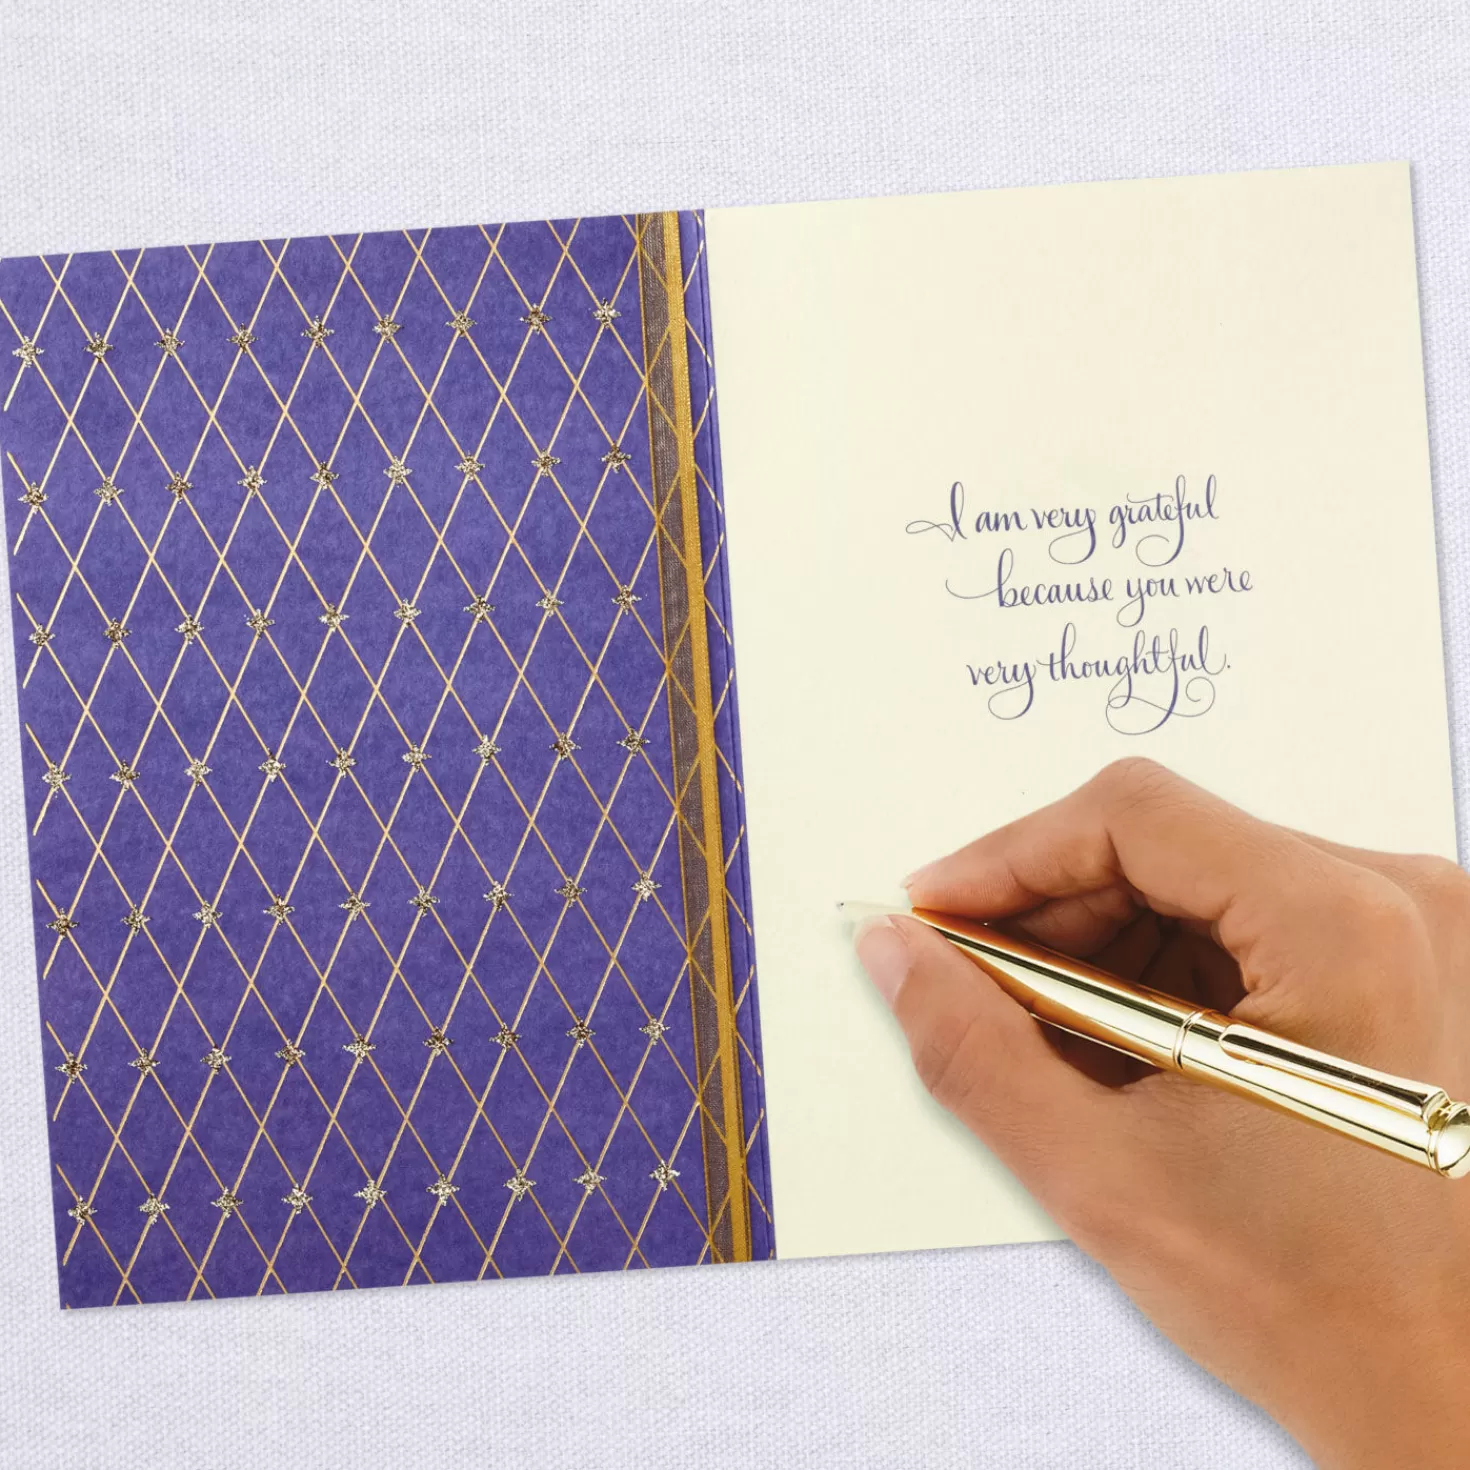 I am very grateful
because you were
very thoughtful.